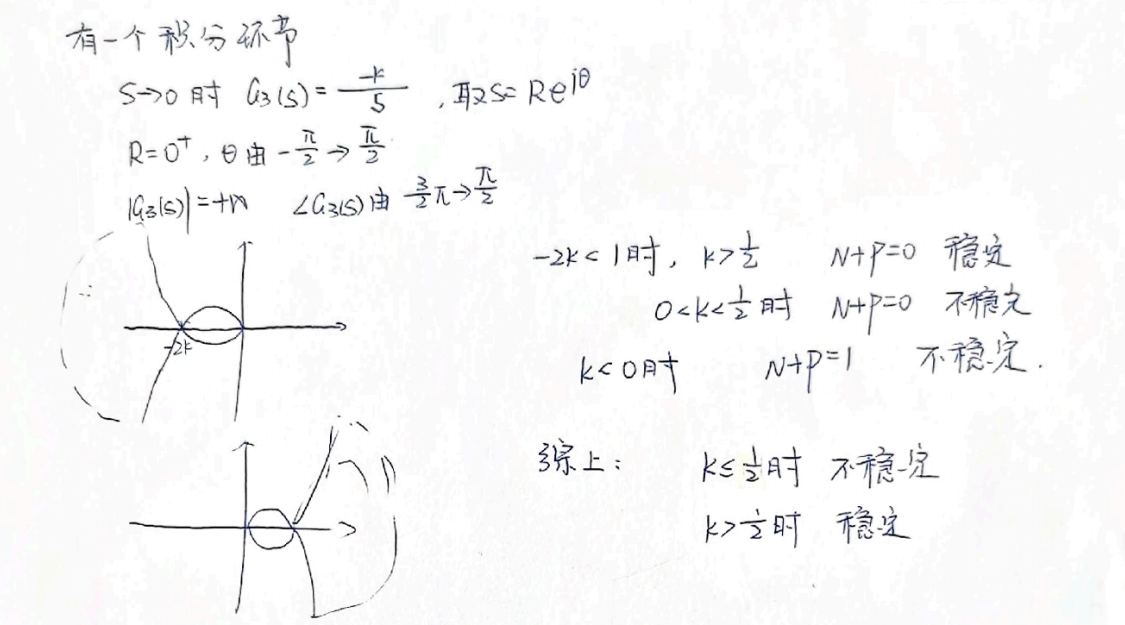 有一个积分环节
S→0时 G₃(s)=-k/s ,取S=Re^{jθ}
R=0⁺, θ由-π/2→π/2
|G₃(s)|=+∞ ∠G₃(s)由3/2π→π/2
-2k<1时, k>1/2 N+P=0 稳定
0<k<1/2时 N+P=0 不稳定
k<0时 N+P=1 不稳定.
-2k
综上: k≤1/2时 不稳定
k>1/2时 稳定